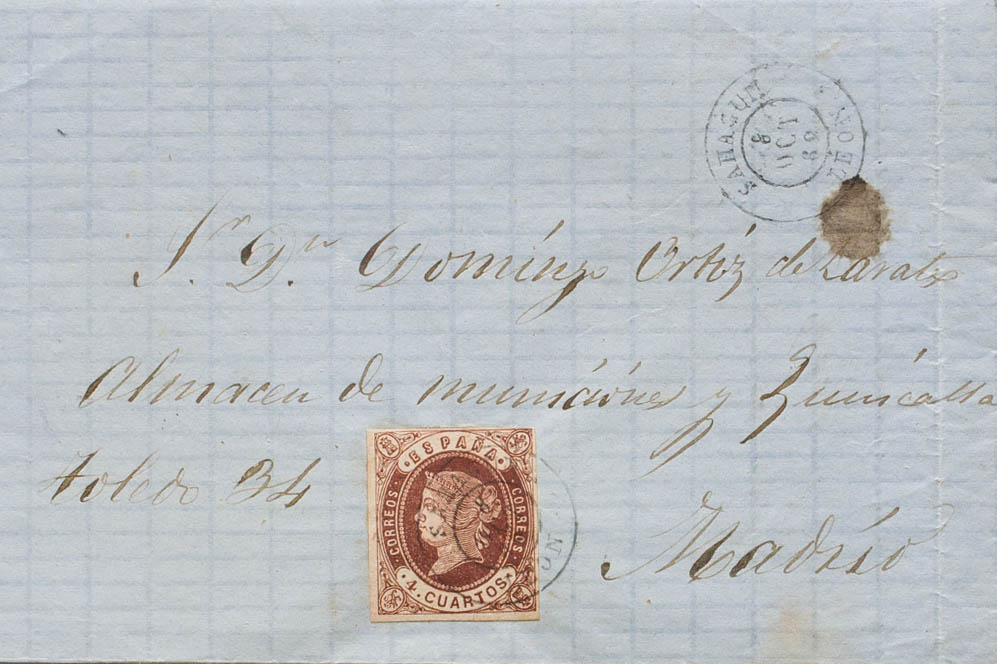 SAHAGUN
LEON
8
OCT
62
Sr. Dn Domingo Ortiz de Zarate
Almacen de municiones y Quincalla
Toledo 34
Madrid
ESPAÑA
CORREOS
CORREOS
4. CUARTOS